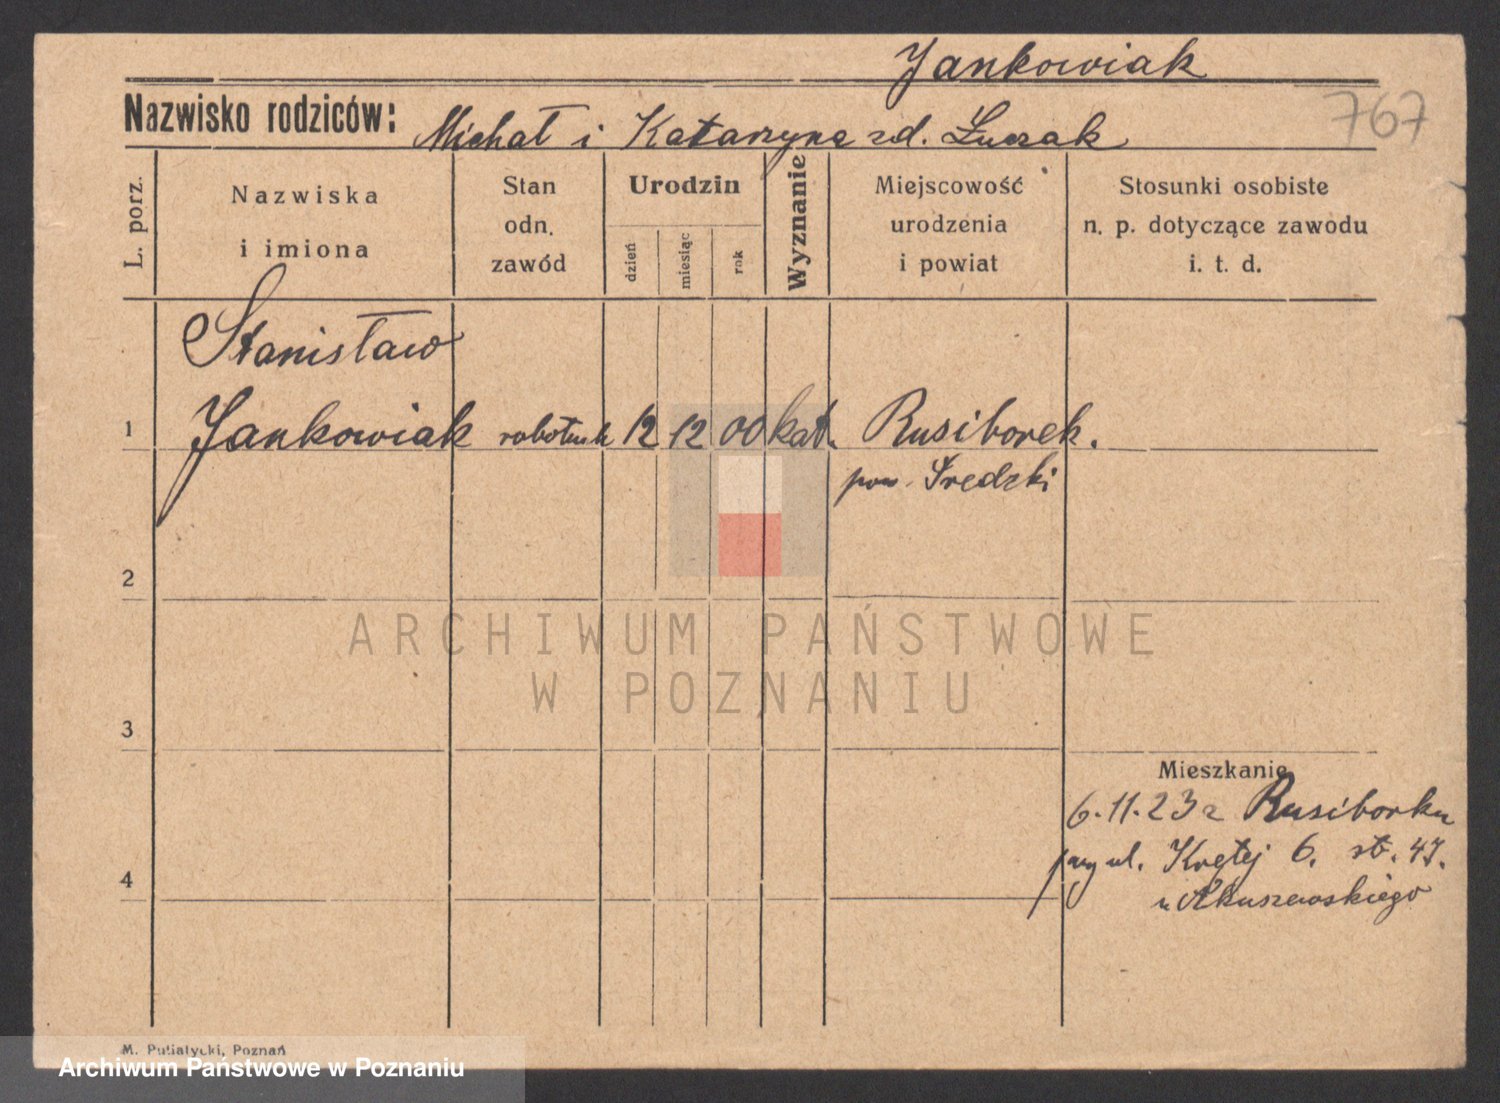 Jankowiak
767
Nazwisko rodziców: Michał i Katarzyna zd. Łuczak
L. porz.
Nazwiska
i imiona
Stan
odn.
zawód
Urodzin
dzień
miesiąc
rok
Wyznanie
Miejscowość
urodzenia
i powiat
Stosunki osobiste
n. p. dotyczące zawodu
i. t. d.
Stanisław
1 Jankowiak robotnik 12 12 00 kat. Rusiborek.
pow. Średzki
2
ARCHIWUM PAŃSTWOWE
W POZNANIU
3
Mieszkanie
6.11.23 z Rusiborku
przy ul. Krętej 6. st. 47.
4
u
M. Putiatycki, Poznań
Archiwum Państwowe w Poznaniu